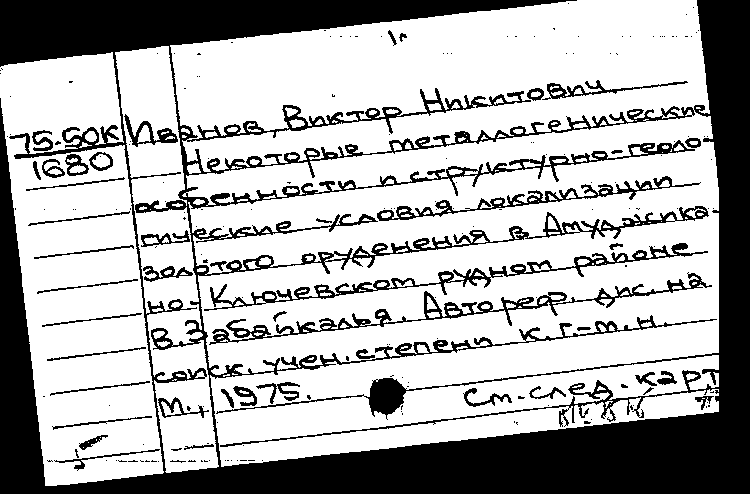 75-50К Иванов, Виктор Никитович.
1680 Некоторые металлогенические
особенности и структурно-геоло-
гические условия локализации
золотого оруденения в Амуджика-
но-Ключевском рудном районе
В. Забайкалья. Автореф. дис. на
соиск. учен. степени к. г.-м. н.
М., 1975.
См. след. карт